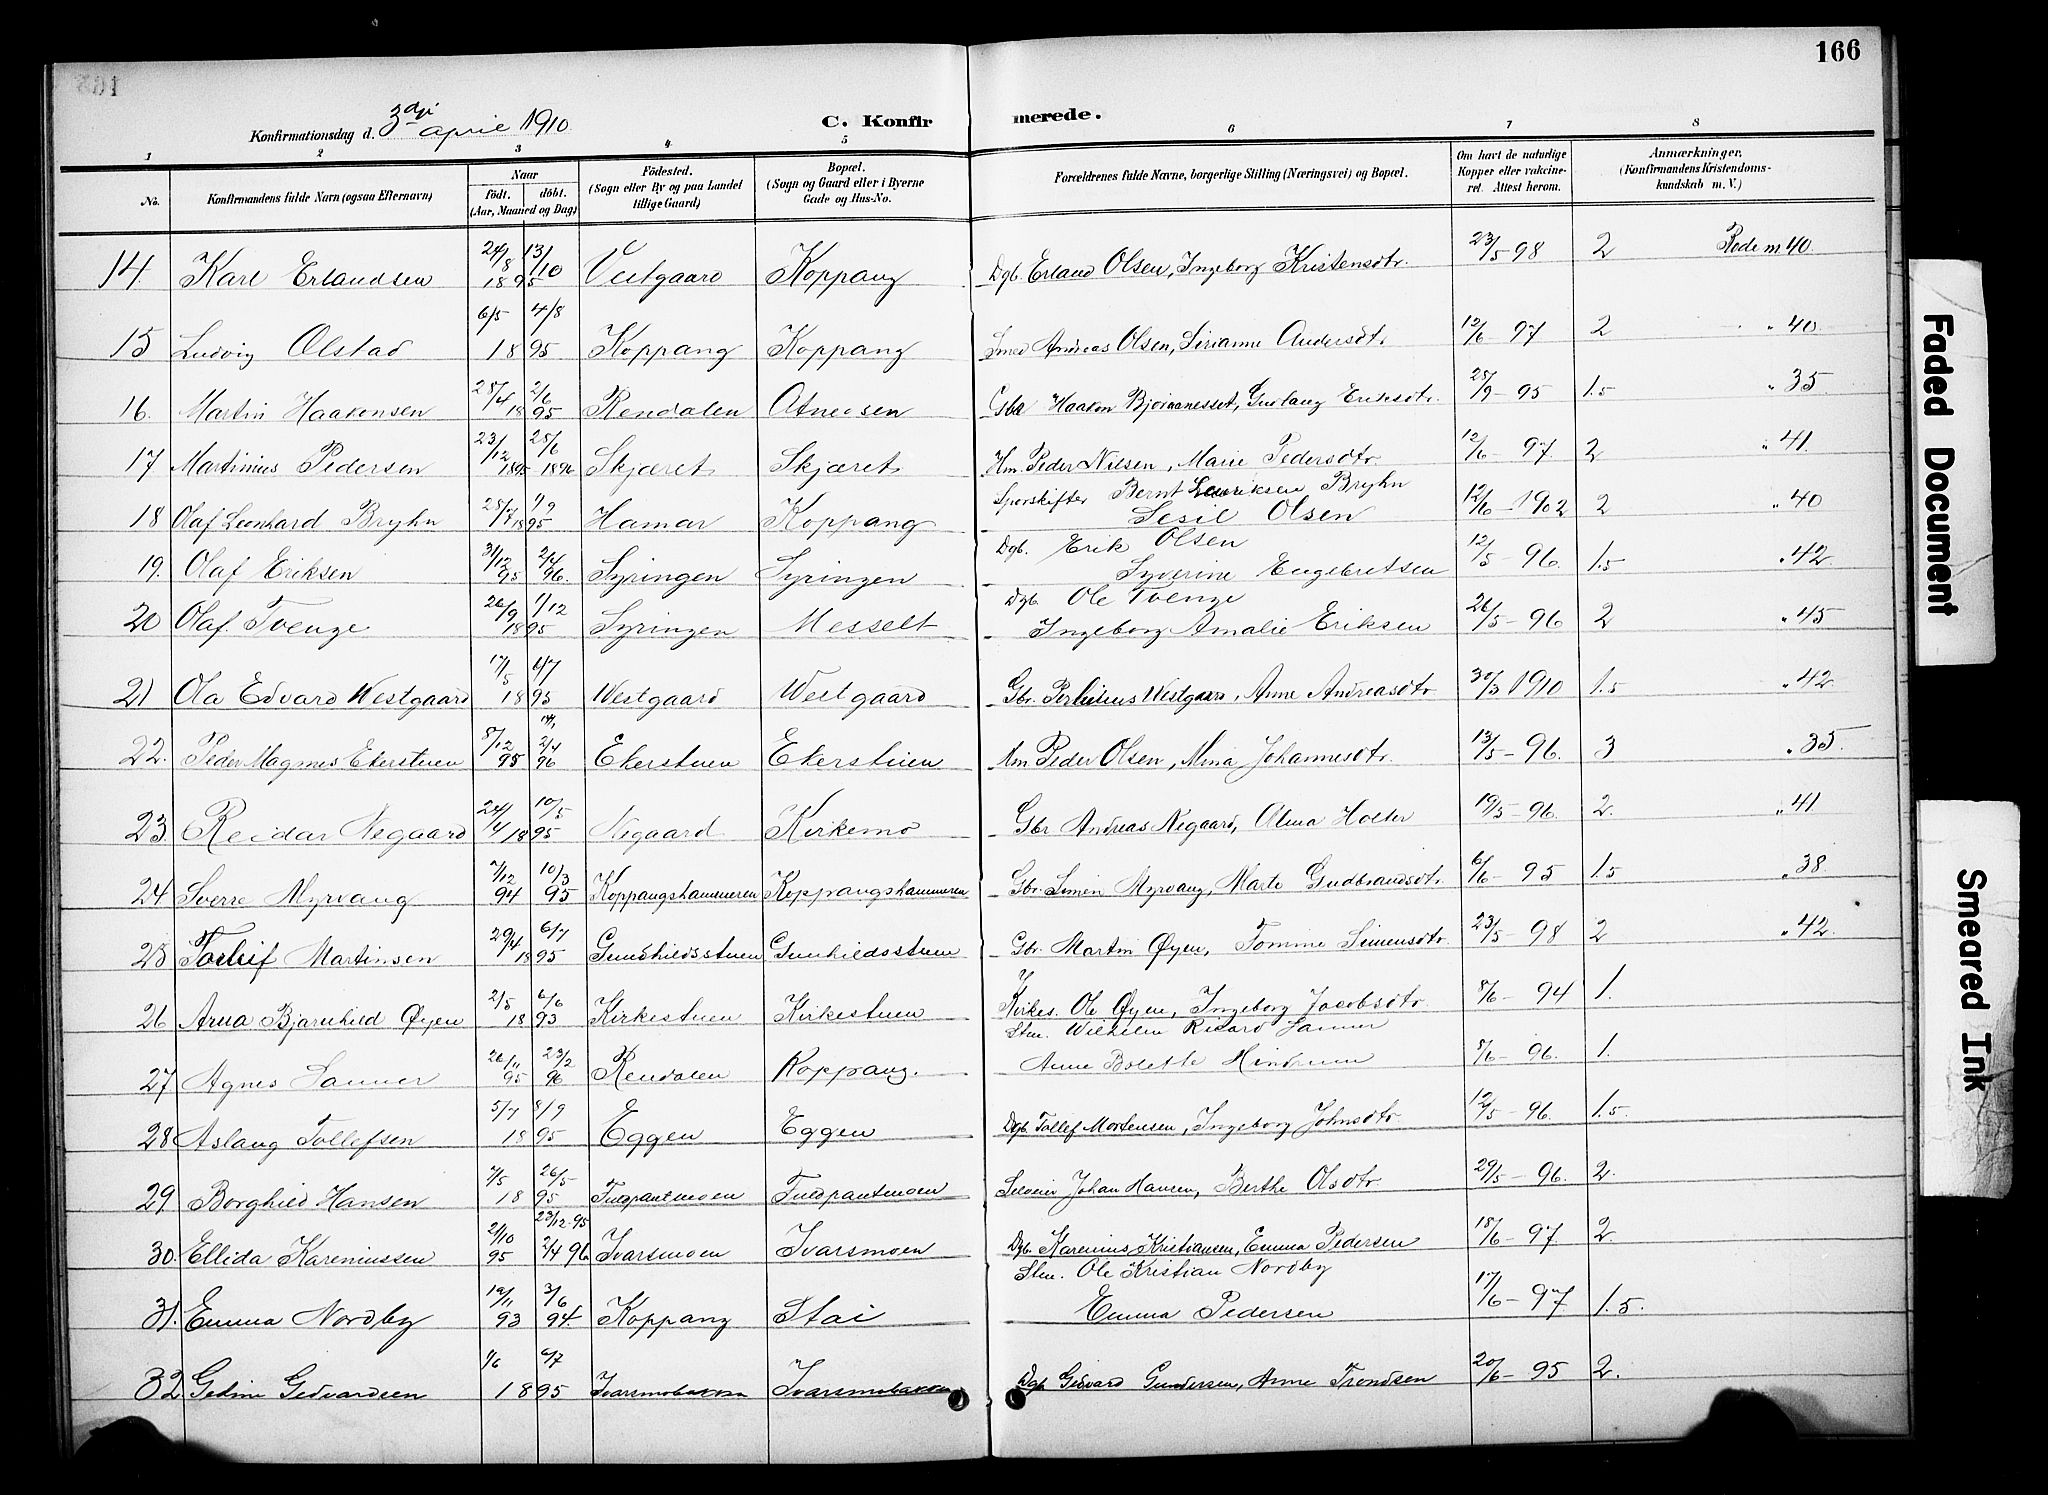 166
Konfirmationsdag d. 3die april 1910.
C. Konfirmerede.
1 2 3 4 5 6 7 8
No. Konfirmandens fulde Navn (ogsaa Efternavn) Naar födt. döbt. (Aar, Maaned og Dag) Födested. (Sogn eller By og paa Landet tillige Gaard) Bopæl. (Sogn og Gaard eller i Byerne Gade og Hus-No. Forældrenes fulde Navne, borgerlige Stilling (Næringsvei) og Bopæl. Om havt de naturlige Kopper eller vaccineret. Attest herom. Anmærkninger. (Konfirmandens Kristendomskundskab m. V.)
14. Karl Erlandsen 24/8 13/10 1895 Vestgaard Koppang Dgb. Erland Olsen, Ingeborg Kristensdtr. 23/5 98 2 Rode m 40
15 Ludvig Olstad 6/5 4/8 1895 Koppang Koppang Smed Andreas Olsen, Sirianne Andersdtr 12/6 - 97 2 " 40
16. Martin Haakensen 28/4 2/6 1895 Rendalen Atneosen Gbr Haakon Bjørnnesset, Gunlaug Eriksdtr. 28/9 - 95 1.5 " 35
17 Martinius Pedersen 23/12 1895 25/6 1896 Skjæret Skjæret Hm. Peder Nilsen, Marie Pedersdtr. 12/6 - 97 2 " 41.
18 Olaf Leonhard Bryhn 28/7 1/9 1895 Hamar Koppang Sporskifter Bernt Lauriksen Bryhn
Sesil Olsen 12/6 - 1902 2 " 40
19. Olaf Eriksen 31/12 95 2/4 96. Syringen Syringen Dgb. Erik Olsen
Syverine Engebretsen 12/5 - 96. 1.5 " 42
20 Olaf Tvenge 26/9 1/12 1895 Syringen Messelt Dgb. Ole Tvenge
Ingeborg Amalie Eriksen 26/5 - 96 2 " 45
21 Ola Edvard Westgaard 17/5 6/7 1895 Westgaard Westgaard Gbr. Westgaard, Anne Andreasdtr 30/3 1910 1.5 " 42
22. Peder Magnus Ekerstuen 8/12 95 2/4 96 Ekerstuen Ekerstuen Peder Olsen, Mina Johannesdtr. 13/5 - 96. 3 " 35.
23. Reidar Negaard 24/4 10/5 1895 Negaard Kirkemo Gbr Andreas Negaard, Alma Holter 19/5 - 96. 2. " 41
24 Sverre Myrvang 7/12 94 10/3 95 Koppangshammeren Koppangshammeren Gbr. Simen Myrvang, Marte Gudbrandsdtr 6/6 - 95 1.5 " 38.
25 Torleif Martinsen 29/4 6/7 1895 Gunhildsstuen Gunhildsstuen Gbr. Martin Øyen, Tomme Simensdtr 23/5 - 98 2 " 42
26 Arna Bjarnhild Øyen 2/5 6/6 1893 Kirkestuen Kirkestuen Kirkes. Ole Øyen, Ingeborg Jacobsdtr. 8/6 - 94 1.
27. Agnes Sanner 26/11 95 23/2 96 Rendalen Koppang. Stm. Wilhelm Rikard Sanner
Anne Bolette Hindrum 8/6 - 96. 1.
28 Aslaug Tollefsen 5/7 8/9 1895 Eggen Eggen Dgb. Tollef Mortensen, Ingeborg Johnsdtr. 12/5 - 96. 1.5.
29 Borghild Hansen 7/5 26/5 1895 Tuldpantmoen Tuldpantmoen Johan Hansen, Berthe Olsdtr 29/5 - 96. 2.
30. Ellida Kareniussen 21/10 95 23/12-95 2/4 96 Ivarsmoen Ivarsmoen Dgb. Karenius Kristiansen, Emma Pedersen 18/6 - 97. 2.
31. Emma Nordby 19/11 93 3/6 94. Koppang Stai Stm. Ole Kristian Nordby
Emma Pedersen 17/6 - 97 1.5.
32 Gedine Gedvardsen 1/6 6/7 1895 Ivarsmobakken Ivarsmobakken Dgb Gedvard Gundersen, Anne Trondsen 20/6 - 95 2.
Faded Document
Smeared Ink